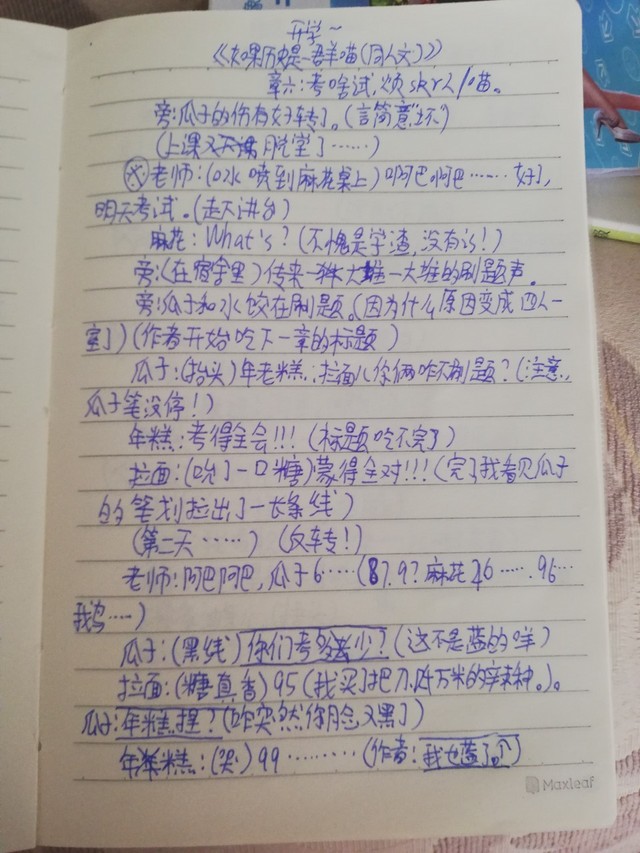 开学~
《如果历史是一群喵(同人文)》
章六:考啥试,烦skr人/喵。
旁:瓜子的伤有好转了。(言简意“坏”)
(上课又天满脱堂了……)
老师:(口水喷到麻花桌上)啊巴啊巴……好了,
明天考试。(走下讲台)
麻花:What's?(不愧是学渣,没有is!)
旁:(在宿舍里)传来一大堆一大堆的刷题声。
旁:瓜子和水饺在刷题。(因为什么原因变成四人一
室了)(作者开始吃下一章的标题)
瓜子:(抬头)年老糕,拉面儿你俩咋不刷题?(注意,
瓜子笔没停!)
年糕:考得全会!!!(标题吃不完了)
拉面:(吮了一口糖)蒙得全对!!!(完了我看见瓜子
的笔划拉出了一长条线)
(第二天……)(反转!)
老师:阿巴阿巴,瓜子6……(87.9?麻花26……96…
我鸟……)
瓜子:(黑线)你们考多少?(这不是蓝的咩)
拉面:(糖真香)95(我买了把刀,
瓜子:年糕捏?(咋突然你脸又黑了)
年糕:(哭)99………(作者:我也蓝了
Maxleaf